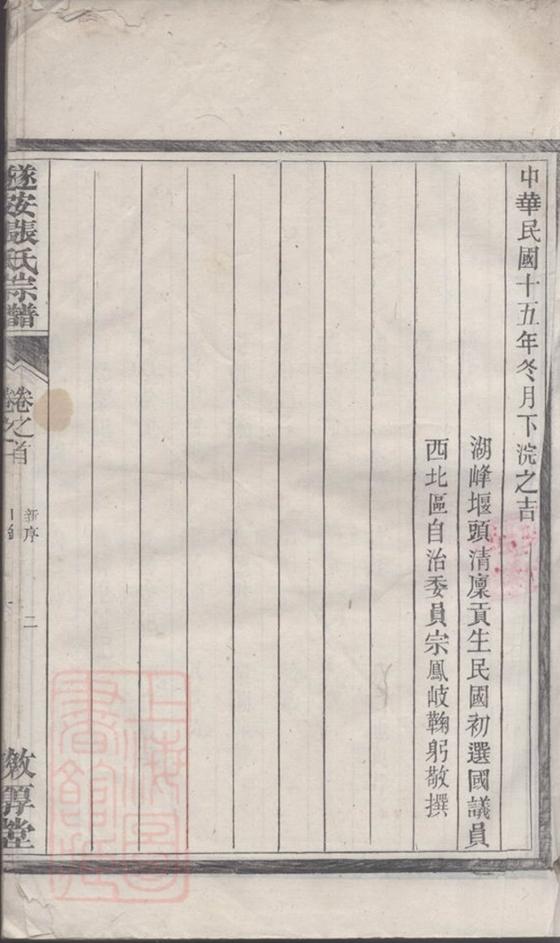 中華民國十五年冬月下浣之吉
湖峰堰頭清廩貢生民國初選國議員
西北區自治委員宗鳳岐鞠躬敬撰
遂安張氏宗譜
卷之首
新序
二
敦厚堂
上海圖書館藏